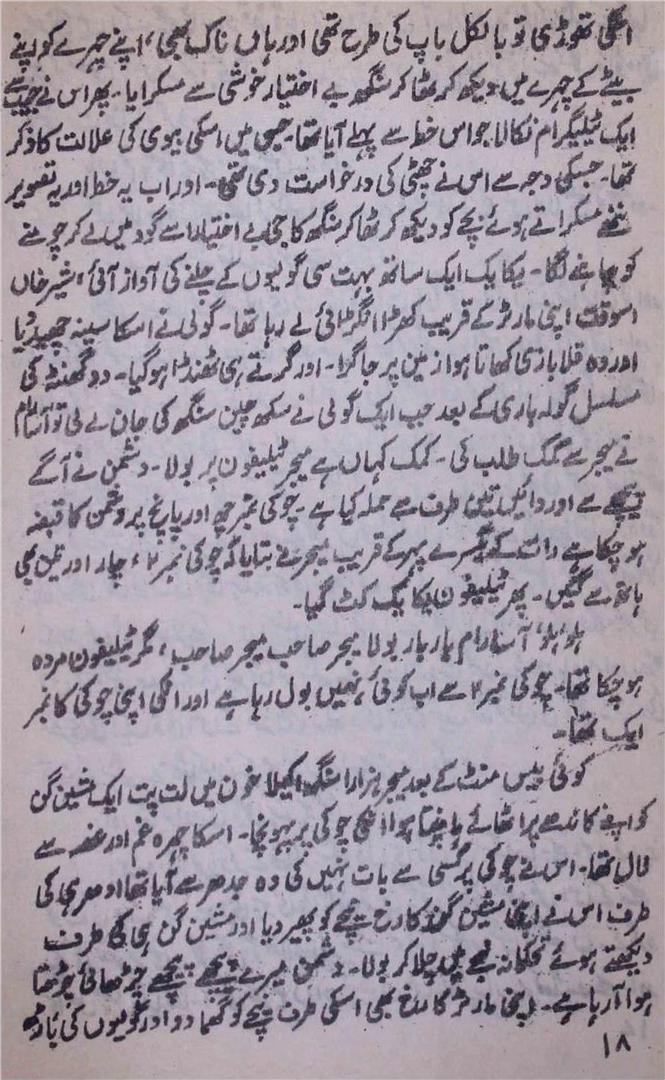 اسکی ٹھوڑی تو بالکل باپ کی طرح تھی اور ہاں ناک بھی، اپنے چہرے کو اپنے
بیٹے کے چہرے میں دیکھ کر ٹھاکر سنگھ بے اختیار خوشی سے مسکرایا۔ پھر اس نے جیب سے
ایک ٹیلیگرام نکالا جو اس خط سے پہلے آیا تھا۔ جس میں اسکی بیوی کی علالت کا ذکر
تھا۔ جسکی وجہ سے اس نے چھٹی کی درخواست دی تھی۔ اور اب یہ خط اور یہ تصویر
ننھے مسکراتے ہوئے بچے کو دیکھ کر ٹھاکر سنگھ کا جی بے اختیار اسے گود میں لے کر چومنے
کو چاہنے لگا۔ یکایک ایک ساتھ بہت سی گولیوں کے چلنے کی آواز آئی، شیر خاں
اسوقت اپنی مارٹر کے قریب کھڑا انگڑائی لے رہا تھا۔ گولی نے اسکا سینہ چھید دیا
اور وہ قلابازی کھاتا ہوا زمین پر جا گرا۔ اور گرتے ہی ٹھنڈا ہو گیا۔ دو گھنٹہ کی
مسلسل گولہ باری کے بعد جب ایک گولی نے سکھ چین سنگھ کی جان لے لی تو آسارام
نے میجر سے کمک طلب کی۔ کمک کہاں ہے میجر ٹیلیفون پر بولا۔ دشمن نے آگے
پیچھے سے اور دائیں تین طرف سے حملہ کیا ہے۔ چوکی نمبر چھ اور پانچ پر دشمن کا قبضہ
ہو چکا ہے رات کے تیسرے پہر کے قریب میجر نے بتایا کہ چوکی نمبر ۲، چار اور تین بھی
ہاتھ سے گئیں۔ پھر ٹیلیفون یکایک کٹ گیا۔
ہلو ہلو، آسارام بار بار بولا میجر صاحب میجر صاحب، مگر ٹیلیفون مردہ
ہو چکا تھا۔ چوکی نمبر ۲ سے اب کوئی نہیں بول رہا ہے اور انکی اپنی چوکی کا نمبر
ایک تھا۔
کوئی بیس منٹ کے بعد میجر ہزارا سنگھ اکیلا خون میں لت پت ایک مشین گن
کو اپنے کاندھے پر اٹھائے ہانپتا ہوا انکی چوکی پر پہونچا۔ اسکا چہرہ غم اور غصہ سے
لال تھا۔ اس نے چوکی پر کسی سے بات نہیں کی وہ جدھر سے آیا تھا ادھر ہی کی
طرف اس نے اپنی مشین گن کا رخ نیچے کو پھیر دیا اور مشین گن ہی کی طرف
دیکھتے ہوئے تحکمانہ لہجے میں چلا کر بولا۔ دشمن میرے پیچھے پیچھے چڑھائی چڑھتا
ہوا آ رہا ہے۔ اپنی مارٹر کا رخ بھی اسکی طرف نیچے کو گھما دو اور گولیوں کی باڑھ
۱۸